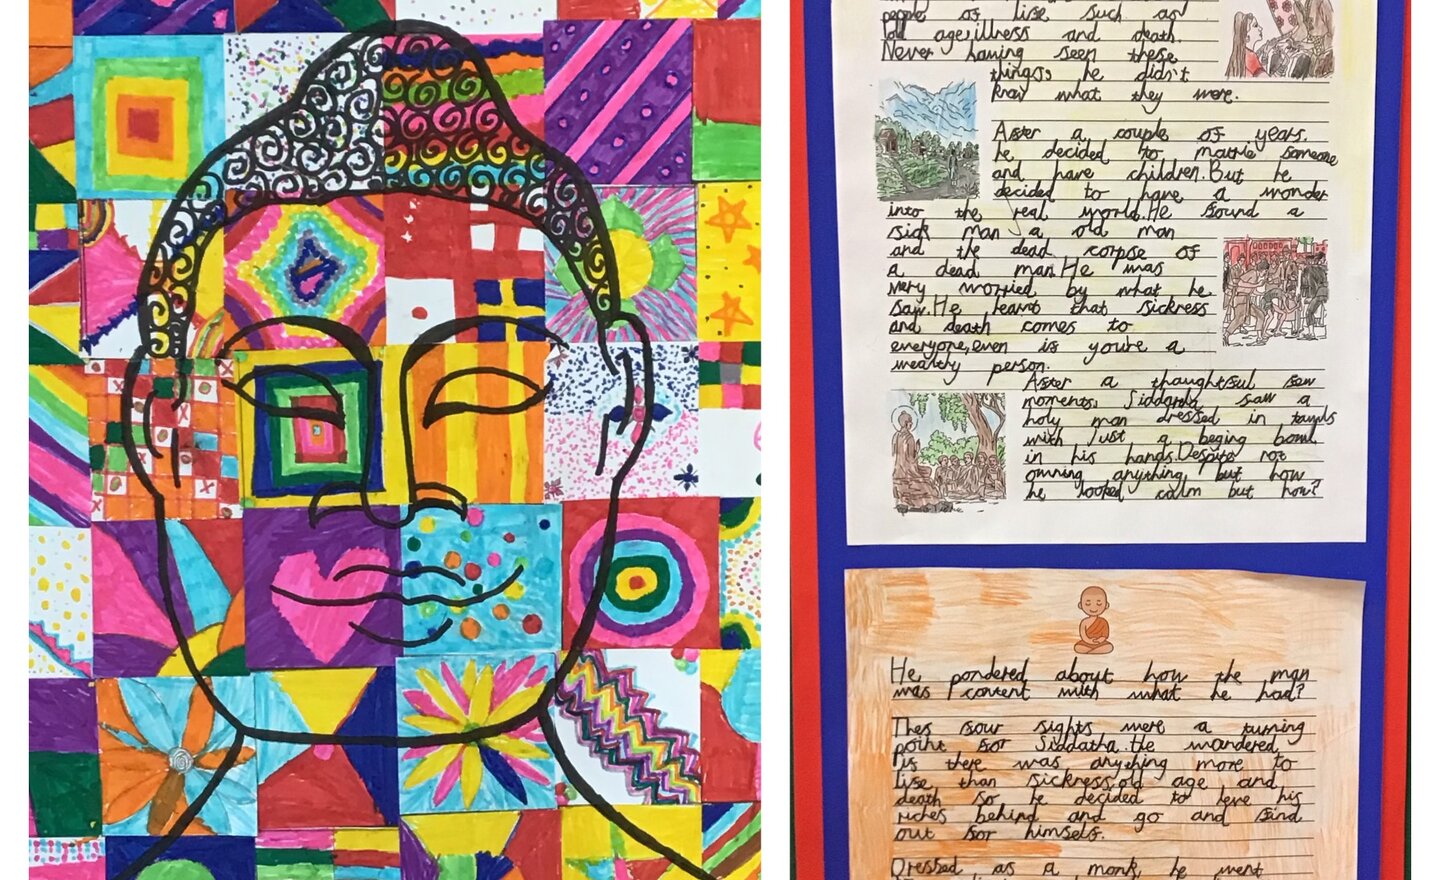 people of life such as
old age, illness and death.
Never having seen these
things, he didn't
know what they were.
After a couple of years.
he decided to marrie someone
and have children. But he
decided to have a wonder
into the real world. He found a
sick man a old man
and the dead corpse of
a dead man. He was
very worried by what he
saw. He learnt that sickness
and death comes to
everyone, even is you're a
wealthy person.
After a thoughtful few
moments, Siddartg saw a
holy man dressed in
with Just a beging bowl.
in his hands. Despite not
owning anything but how
he looked calm but how?
He pondered about how the man
was content with what he had?
Thes four sights were a turning
point for Siddatha. He wandered
is there was anything more to
life than sickness, old age and
death so he decided to leve his
riches behind and go and find
out for himself.
Dressed as a monk, he went